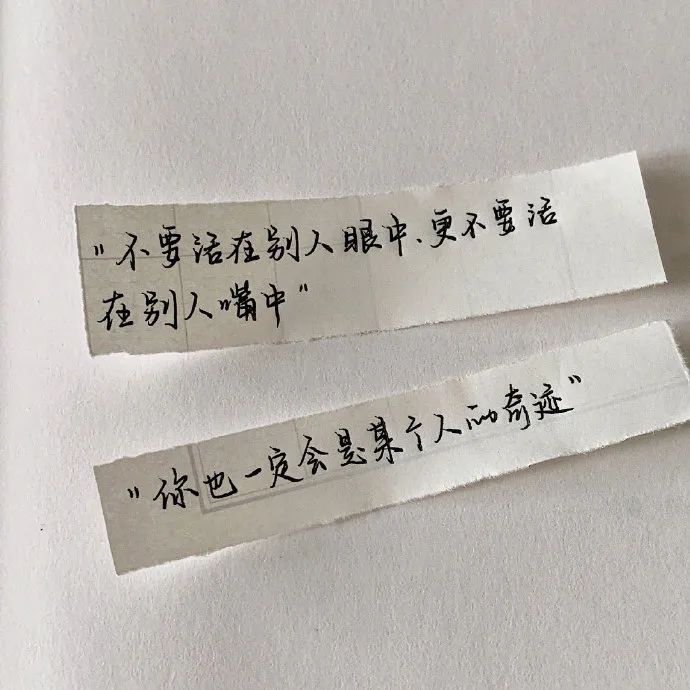 "不要活在别人眼中.更不要活
在别人嘴中"
"你也一定会是某个人的奇迹"